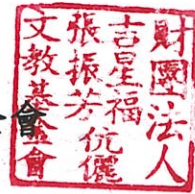 財團法人
吉星福
張振芳伉儷
文教基金會
會